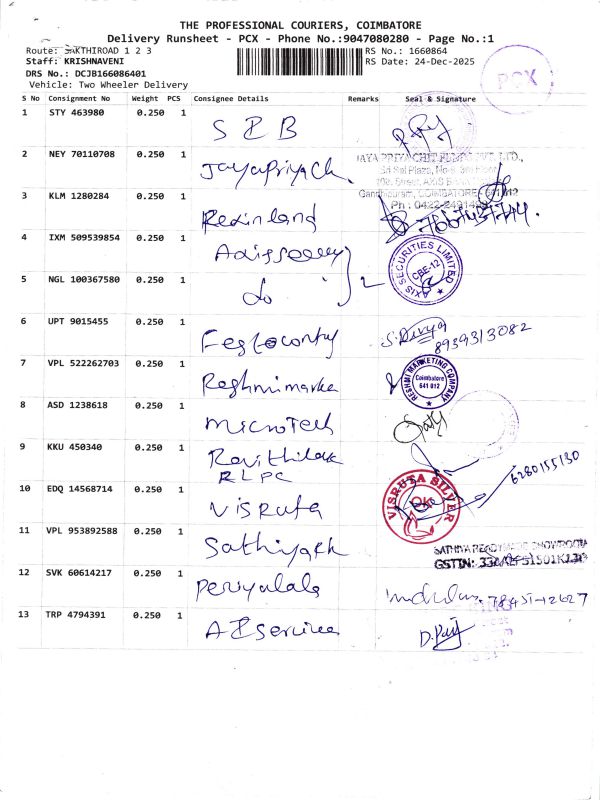 THE PROFESSIONAL COURIERS, COIMBATORE
Delivery Runsheet - PCX - Phone No.:9047080280 - Page No.:1
Route: SAKTHIROAD 1 2 3 RS No.: 1660864
Staff: KRISHNAVENI RS Date: 24-Dec-2025
DRS No.: DCJB166086401
Vehicle: Two Wheeler Delivery
PCX
S No Consignment No Weight PCS Consignee Details Remarks Seal & Signature
1 STY 463980 0.250 1 S E B
2 NEY 70110708 0.250 1 Jayapriyach
JAYA PRIYA CHIT FUNDS PVT. LTD.,
Sri Sai Plaza,
Gandhipuram, COIMBATORE
3 KLM 1280284 0.250 1 Redinland
4 IXM 509539854 0.250 1
AXIS SECURITIES LIMITED
CBE-12
5 NGL 100367580 0.250 1 do 2
6 UPT 9015455 0.250 1 S. Divya
8939313082
7 VPL 522262703 0.250 1 Reshmimarke
RESHMI MARKETING COMPANY
Coimbatore
641 012
8 ASD 1238618 0.250 1 MICROTech
9 KKU 450340 0.250 1 Ravithilak
RLPC
6280155130
10 EDQ 14568714 0.250 1 VISRUTA
VISRUTA SILVER
11 VPL 953892588 0.250 1 Sathiyark
SATHYA READYMADE SHOWROOM
GSTIN:
12 SVK 60614217 0.250 1 78451-12627
13 TRP 4794391 0.250 1 AE service